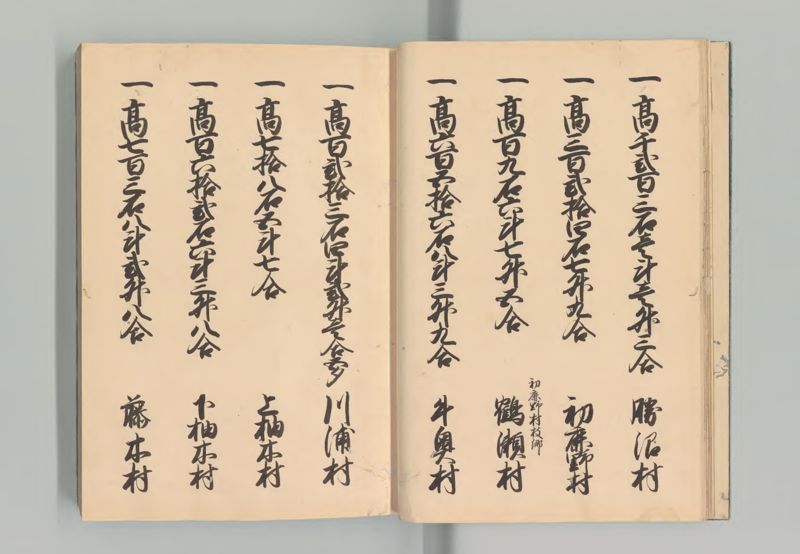 一高千弐百三石壱斗壱升三合 勝沼村
一高三百弐拾四石七升九合 初鹿野村
一高百九石六斗七升五合 初鹿野村枝郷 鶴瀬村
一高六百五拾六石八斗三升九合 牛奥村
一高百弐拾三石四斗弐升壱合 川浦村
一高七拾八石五斗七合 上柚木村
一高百六拾弐石六斗三升八合 下柚木村
一高七百三石八斗弐升八合 藤木村